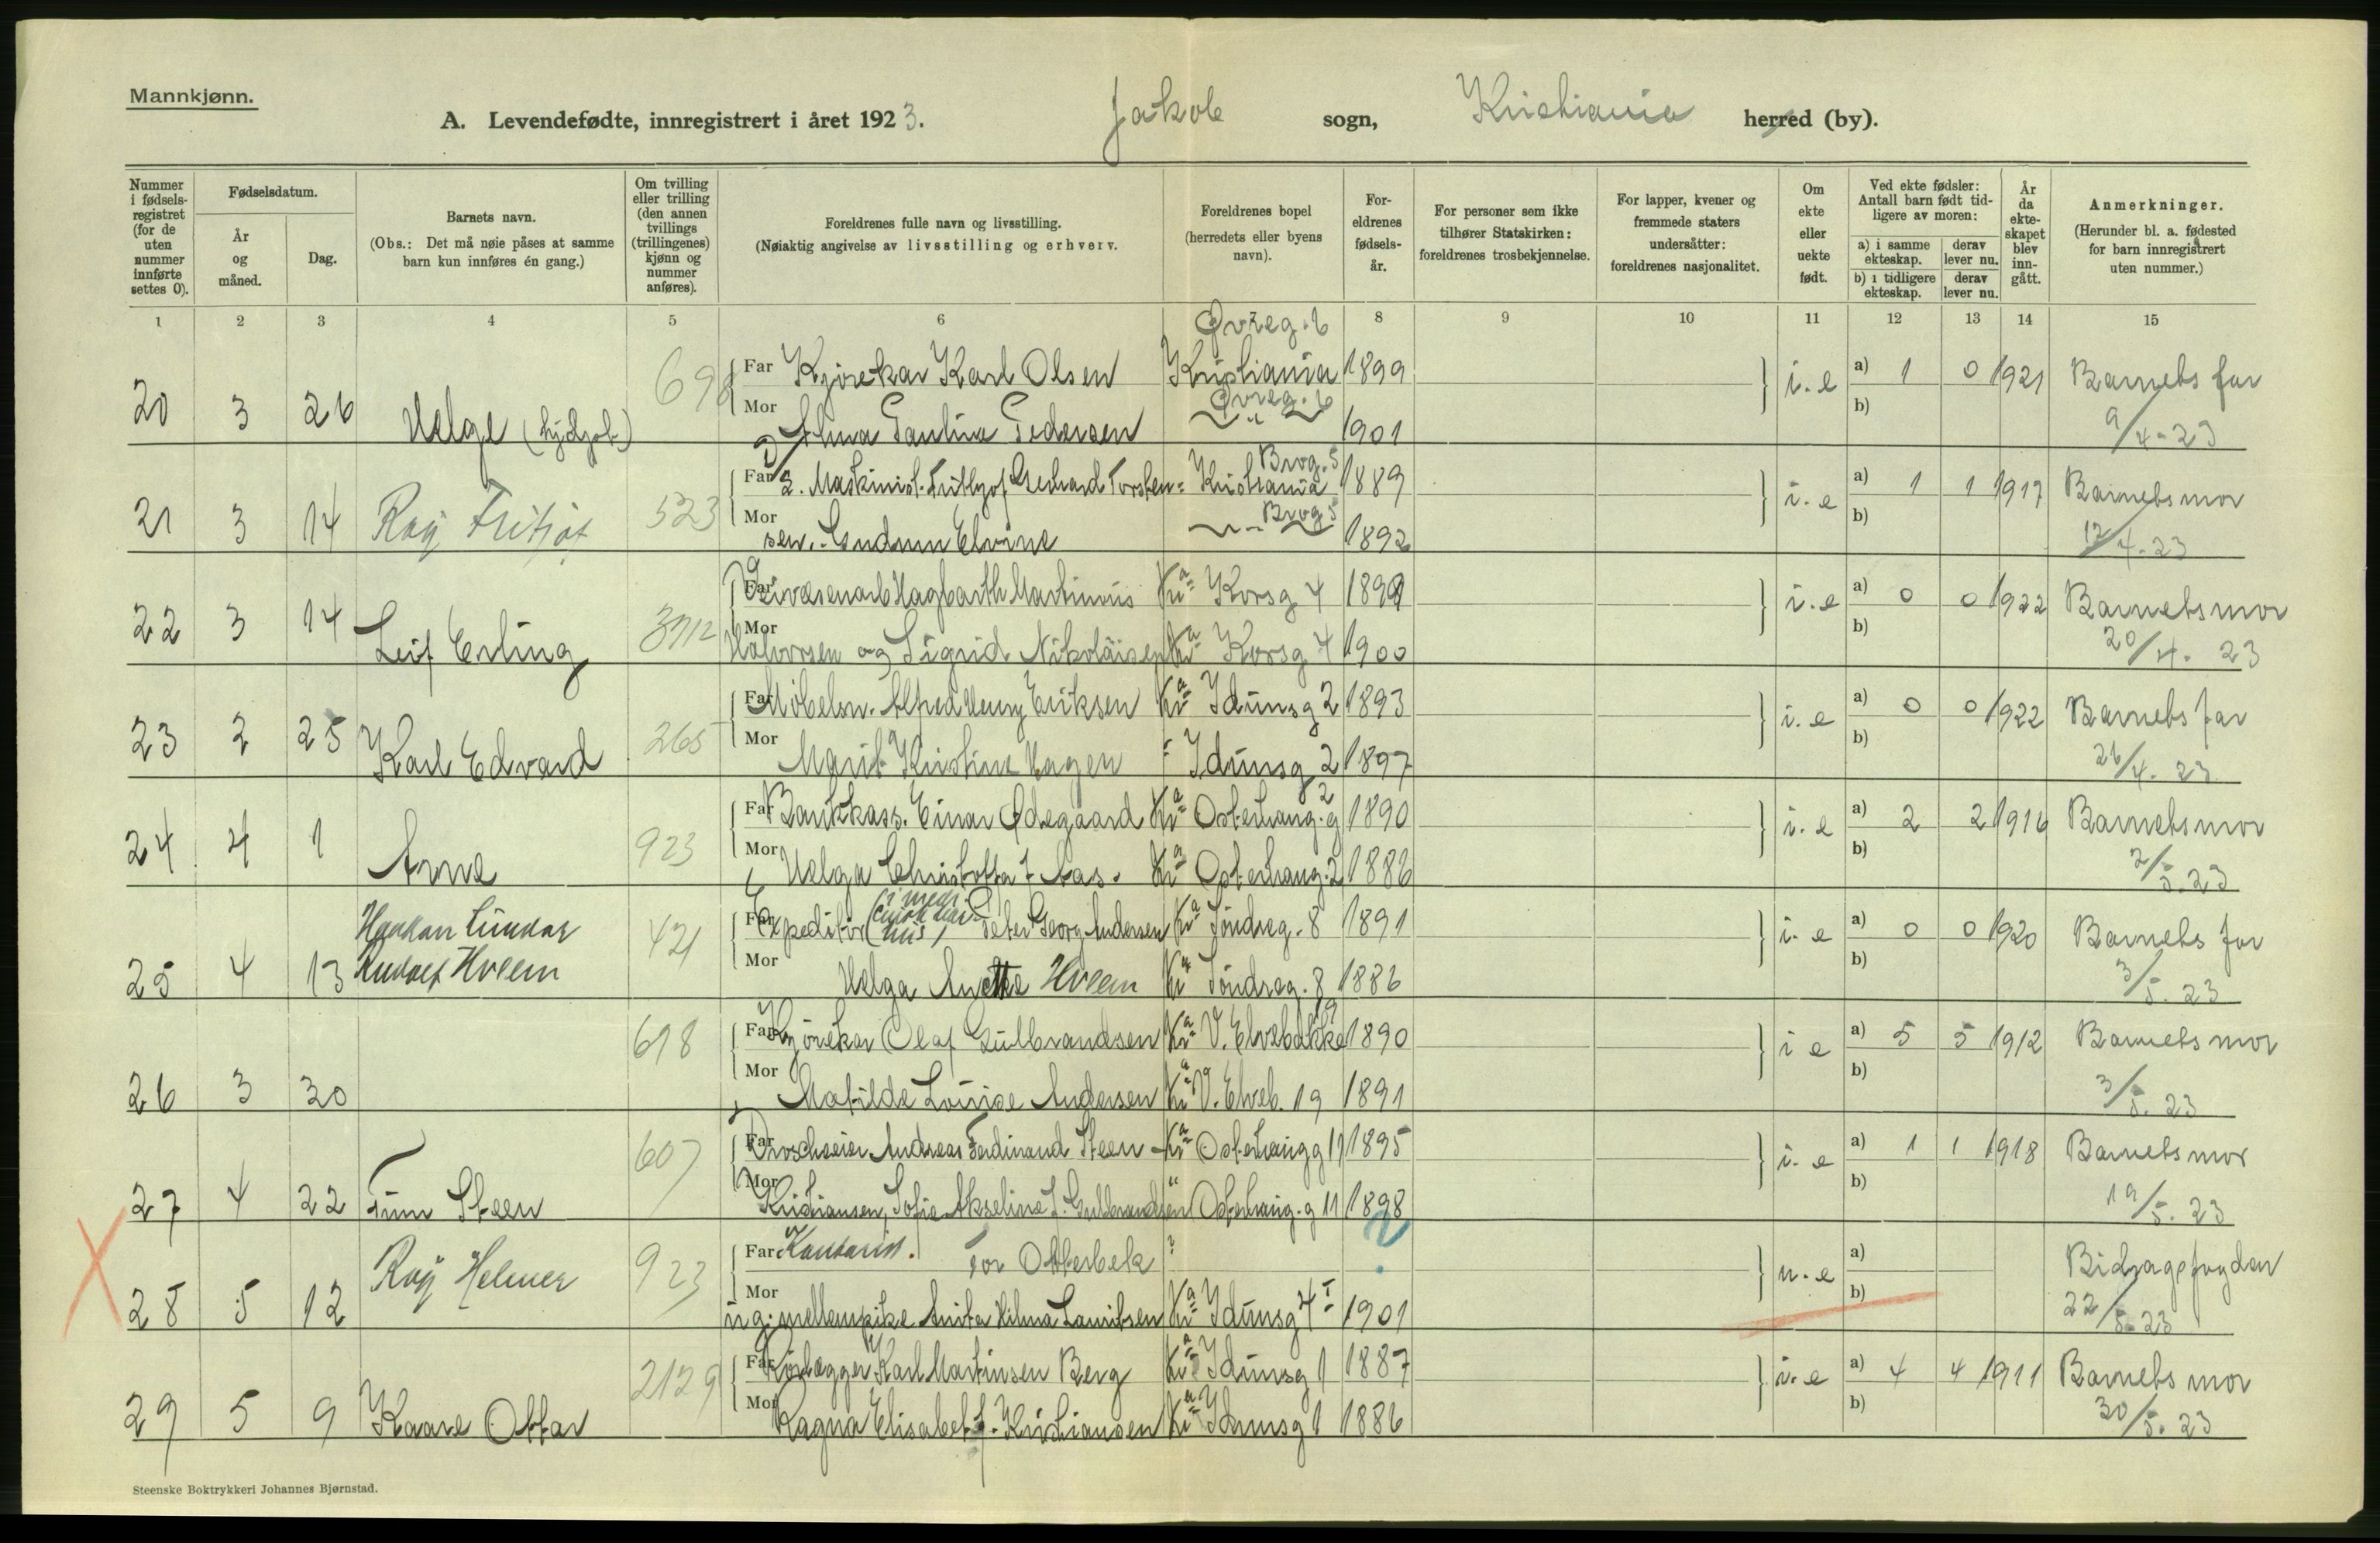 Mannkjønn.
A. Levendefødte, innregistrert i året 1923. Jakob sogn, Kristiania herred (by).
Nummer i fødselsregistret (for de uten nummer innførte settes 0).
Fødselsdatum.
År og måned.
Dag.
Barnets navn.
(Obs.: Det må nøie påses at samme barn kun innføres én gang.)
Om tvilling eller trilling (den annen tvillings (trillingenes) kjønn og nummer anføres).
Foreldrenes fulle navn og livsstilling.
(Nøiaktig angivelse av livsstilling og erhverv.
Foreldrenes bopel (herredets eller byens navn).
Foreldrenes fødselsår.
For personer som ikke tilhører Statskirken: foreldrenes trosbekjennelse.
For lapper, kvener og fremmede staters undersåtter: foreldrenes nasjonalitet.
Om ekte eller uekte født.
Ved ekte fødsler: Antall barn født tidligere av moren:
a) i samme ekteskap. derav lever nu.
b) i tidligere ekteskap. derav lever nu.
År da ekteskapet blev inngått.
Anmerkninger.
(Herunder bl. a. fødested for barn innregistrert uten nummer.)
1 2 3 4 5 6 8 9 10 11 12 13 14 15
Øvreg. 6
20 3 26 Helge 698 Far Kjørekar Karl Olsen Kristiania 1899 i. e a) 1 0 1921 Barnets far
Mor Alma Paulina Pedersen Øvreg. 6 1901 b) 9/4-23
21 3 14 Roy Fritjof 523 Far 2. Maskinist Fritjof Gerhard Torsten= Kristiania Brog. 5 1889 i. e a) 1 1 1917 Barnets mor
Mor sen. Gudrun Elvine Brog 5 1892 b) 12/4-23
22 3 14 Leif Erling Far Hagbarth Martinius Kra Korsg 4 1899 i. e a) 0 0 1922 Barnets mor
Mor Halvorsen og Sigrid Nikolaisen Kra Korsg 4 1900 b) 20/4. 23
23 2 25 Karl Edvard 265 Far Møbelsn. Alfred Henry Eriksen Kra Idunsg 2 1893 i. e a) 0 0 1922 Barnets far
Mor Marit Kristine Hagen Idunsg 2 1897 b) 26/4. 23
24 4 1 Arne 923 Far Bankkass. Einar Ødegaard Kra Osterhausg. 2 1890 i. e a) 2 2 1916 Barnets mor
Mor Helga f. Aas. Kra Osterhausg. 2 1886 b) 2/5. 23
25 4 13 Haakon Gunnar Rudolf Hveem 421 Far Expeditør Peter Georg Andersen Kra Söndreg. 8 1891 i. e a) 0 0 1920 Barnets far
Mor Helga Anette Hveem Kra Söndreg. 8 1886 b) 3/5. 23
26 3 30 698 Far Kjørekar Olaf Gulbrandsen Kra V. Elvebakke 19 1890 i e a) 5 5 1912 Barnets mor
Mor Matilde Lovise Andersen Kra V. Elveb. 19 1891 b) 3/5. 23
27 4 22 Finn Steen 607 Far Droscheeier Andreas Ferdinand Steen Kra Osterhausg 11 1895 i. e a) 1 1 1918 Barnets mor
Mor Kristiansen, Sofie Akseline f. Gulbrandsen " Osterhaug. g 11 1898 b) 19/5. 23
28 5 12 Roy Helmer 923 Far Kontorist. Tor Otterbek ? ? u. e a) Bidragsfogden
Mor ug. mellempike Anita Hilma Lauritsen Kra Idunsg 4 I 1901 b) 22/5-23
29 5 9 Kaare Ottar 2129 Far Rørlægger Karl Martinsen Berg Kra Idunsg 1 1887 i. e a) 4 4 1911 Barnets mor
Mor Ragna Elisabet f. Kristiansen Kra Idunsg 1 1886 b) 30/5. 23
Steenske Boktrykkeri Johannes Bjørnstad.